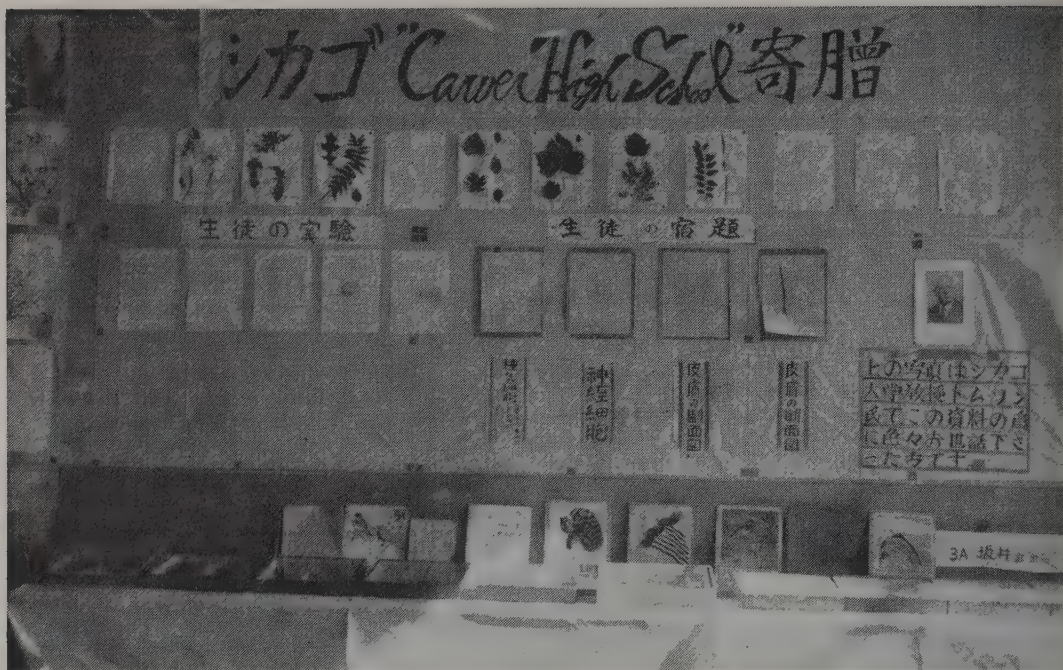 シカゴ "Carver High School" 寄贈
生徒の実験
生徒の宿題
神経細胞
皮膚の断面図
皮膚の断面図
上の写真はシカゴ
大学教授トムソン
氏でこの資料の為
に色々お世話下さ
った方です
3A 坂井